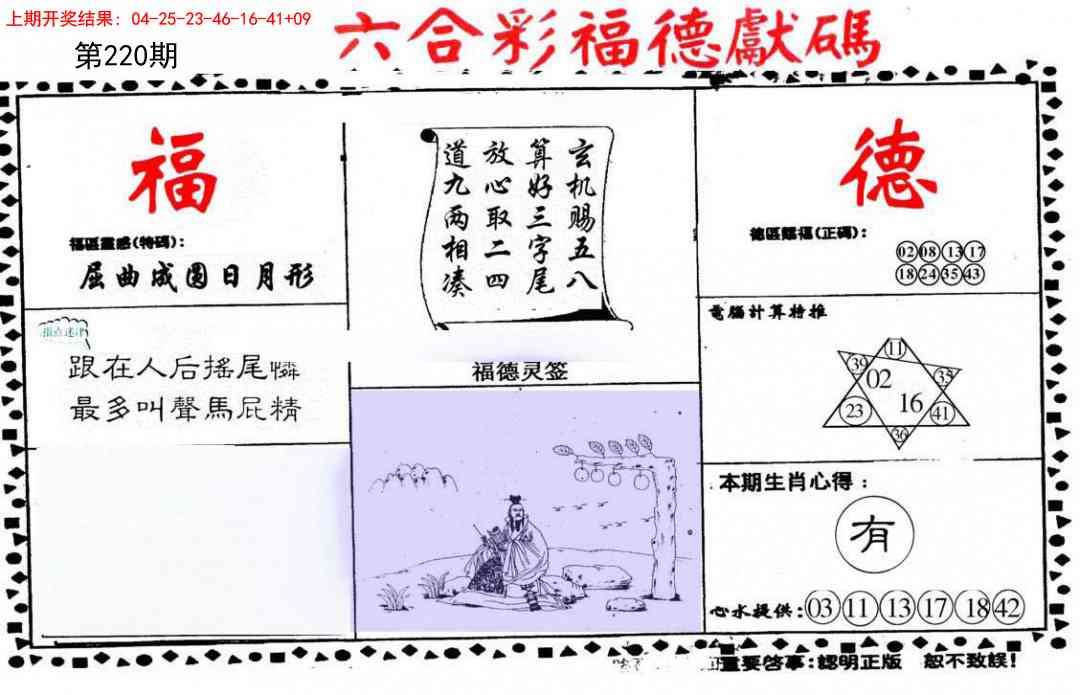 上期开奖结果：04-25-23-46-16-41+09
第220期
六合彩福德獻碼
福
福區靈感(特碼)：
屈曲成圆日月形
指点迷津
跟在人后搖尾憐
最多叫聲馬屁精
玄机赐五八
算好三字尾
放心取二四
道九两相凑
福德灵签
德
德區賜福(正碼)：
02 08 13 17
18 24 35 43
電腦計算特推
11
39 02 35
23 16 41
36
本期生肖心得：
有
心水提供：03 11 13 17 18 42
重要啓事：認明正版 恕不致誤！